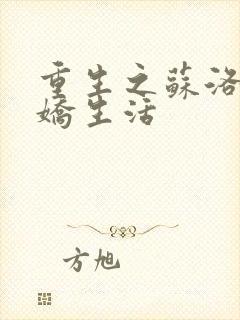 重生之蘇洛
嬌生活
方旭